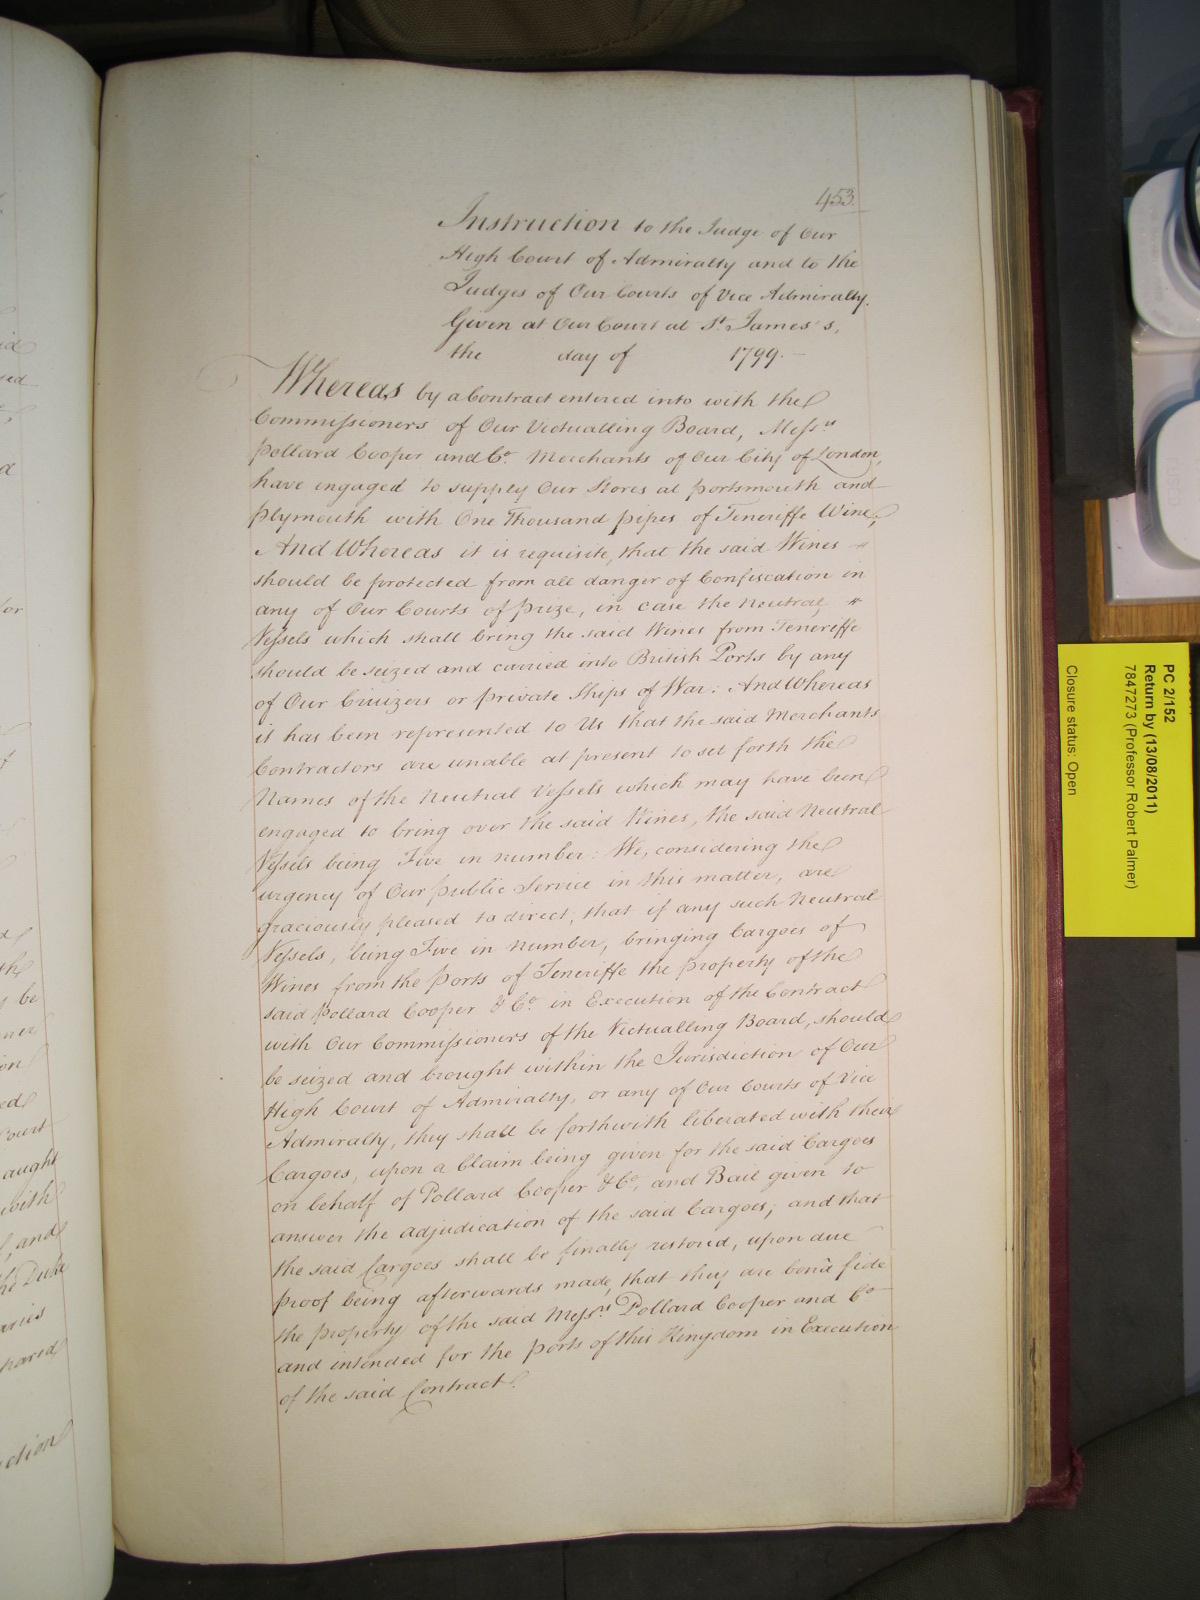 453.
Instruction to the Judge of Our
High Court of Admiralty and to the
Judges of Our Courts of Vice Admiralty.
Given at Our Court at St. James's,
the day of 1799.-
Whereas by a Contract entered into with the
Commissioners of Our Victualling Board, Messrs
Pollard Cooper and Co. Merchants of Our City of London,
have engaged to supply Our Stores at Portsmouth and
Plymouth with One Thousand pipes of Teneriffe Wine;
And Whereas it is requisite, that the said Wines
should be protected from all danger of Confiscation in
any of Our Courts of Prize, in case the Neutral
Vessels which shall bring the said Wines from Teneriffe
should be seized and carried into British Ports by any
of Our Cruizers or private Ships of War: And Whereas
it has been represented to Us that the said Merchants
Contractors are unable at present to set forth the
Names of the Neutral Vessels which may have been
engaged to bring over the said Wines, the said Neutral
Vessels being Five in number: We, considering the
urgency of Our public Service in this matter, are
graciously pleased to direct, that if any such Neutral
Vessels, being Five in number, bringing Cargoes of
Wines from the Ports of Teneriffe the property of the
said Pollard Cooper & Co. in Execution of the Contract
with Our Commissioners of the Victualling Board, should
be seized and brought within the Jurisdiction of Our
High Court of Admiralty, or any of Our Courts of Vice
Admiralty, they shall be forthwith liberated with their
Cargoes, upon a Claim being given for the said Cargoes
on behalf of Pollard Cooper & Co. and Bail given to
answer the adjudication of the said Cargoes; and that
the said Cargoes shall be finally restored, upon due
proof being afterwards made, that they are bonâ fide
the property of the said Messrs Pollard Cooper and Co
and intended for the Ports of this Kingdom in Execution
of the said Contract.
for
the
be
Court
aught
with
, and
Duke
ction
PC 2/152
Return by (13/08/2011)
7847273 (Professor Robert Palmer)
Closure status: Open